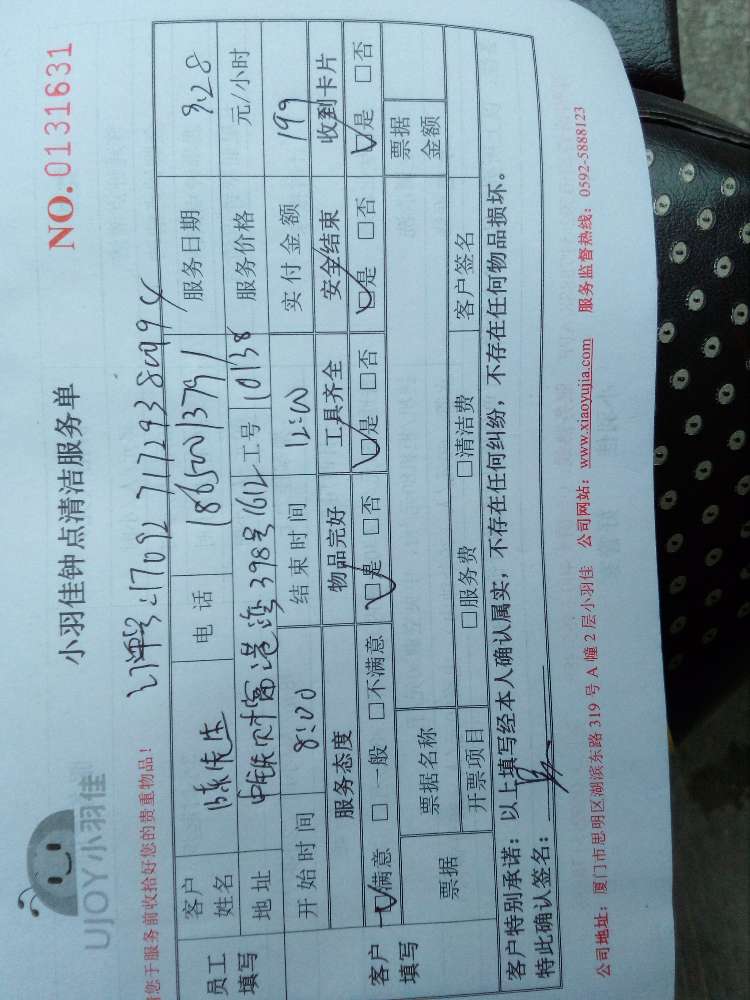 UJOY小羽佳
小羽佳钟点清洁服务单
NO.0131631
您于服务前收拾好您的贵重物品!
订单号:1709271729380994
员工填写
客户姓名 陈先生 电话 18650013791 服务日期 9.28
地址 中铁财富港湾398号1612 工号 10138 服务价格 元/小时
开始时间 8:00 结束时间 12:00 实付金额 199
客户填写
服务态度 物品完好 工具齐全 安全结束 收到卡片
☑满意 □一般 □不满意 ☑是 □否 ☑是 □否 ☑是 □否 ☑是 □否
票据 票据名称 票据金额
开票项目 □服务费 □清洁费 客户签名
客户特别承诺:以上填写经本人确认属实,不存在任何纠纷,不存在任何物品损坏。
特此确认签名:
公司地址:厦门市思明区湖滨东路 319 号 A 幢 2 层小羽佳 公司网站:www.xiaoyujia.com 服务监督热线:0592-5888123